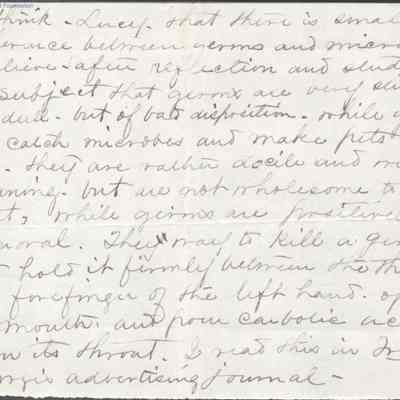 Foundation
think - Lucy. that there is small
erence between germs and micro
lieve - after reflection and stud
subject that germs are very
dued - but of bad disposition - while
catch microbes and make pets
. They are rather docile and
aning - but are not wholesome to
t, while germs are positive
moral. The way to kill a ger
hold it firmly between the th
forefinger of the left hand - op
mouth and pour carbolic ac
n its throat. I read this in
orgie advertising journal -